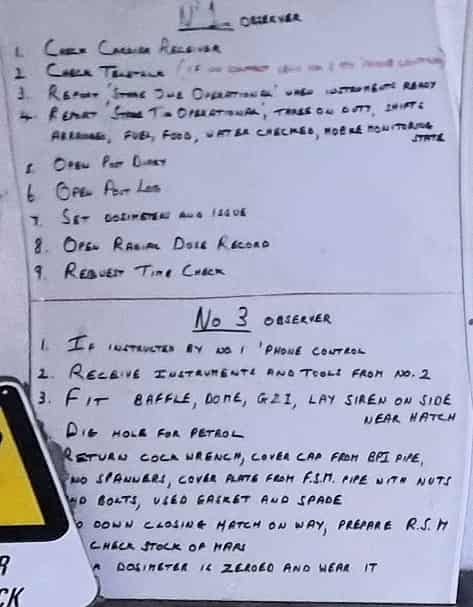 No 1 OBSERVER
1. CHECK CARRIER RECEIVER
2. CHECK TELETALK (IF NO CONTACT SEND NO 3 TO PHONE CONTROL)
3. REPORT 'STAGE ONE OPERATIONAL' WHEN INSTRUMENTS READY
4. REPORT 'STAGE TWO OPERATIONAL', THREE ON DUTY, SHIFTS
ARRANGED, FUEL, FOOD, WATER CHECKED, MOBILE MONITORING
STATE
5. OPEN POST DIARY
6. OPEN POST LOG
7. SET DOSIMETERS AND ISSUE
8. OPEN RADIAC DOSE RECORD
9. REQUEST TIME CHECK
No 3 OBSERVER
1. IF INSTRUCTED BY NO. 1 'PHONE CONTROL
2. RECEIVE INSTRUMENTS AND TOOLS FROM NO. 2
3. FIT BAFFLE, DOME, GZI, LAY SIREN ON SIDE
NEAR HATCH
DIG HOLE FOR PETROL
RETURN COCK WRENCH, COVER CAP FROM BPI PIPE,
SPANNERS, COVER PLATE FROM F.S.M. PIPE WITH NUTS
BOLTS, USED GASKET AND SPADE
DOWN CLOSING HATCH ON WAY, PREPARE R.S.M
CHECK STOCK OF MAPS
DOSIMETER IS ZEROED AND WEAR IT
R
CK